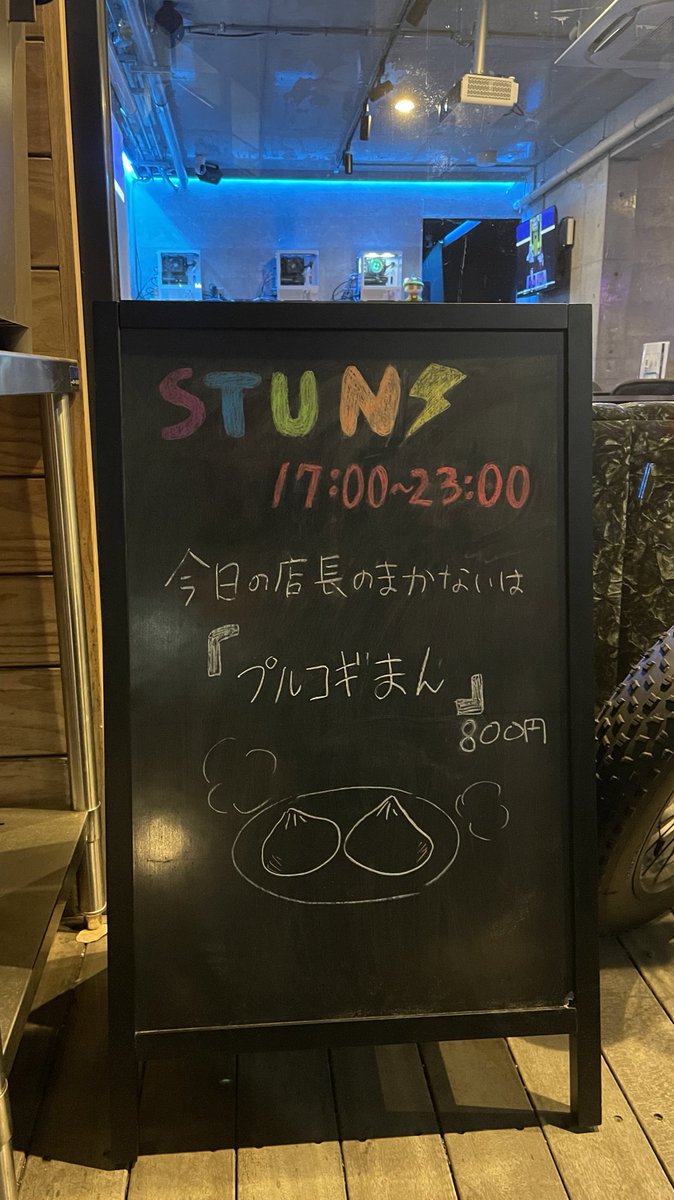 STUN
17:00~23:00
今日の店長のまかないは
『プルコギまん』
800円